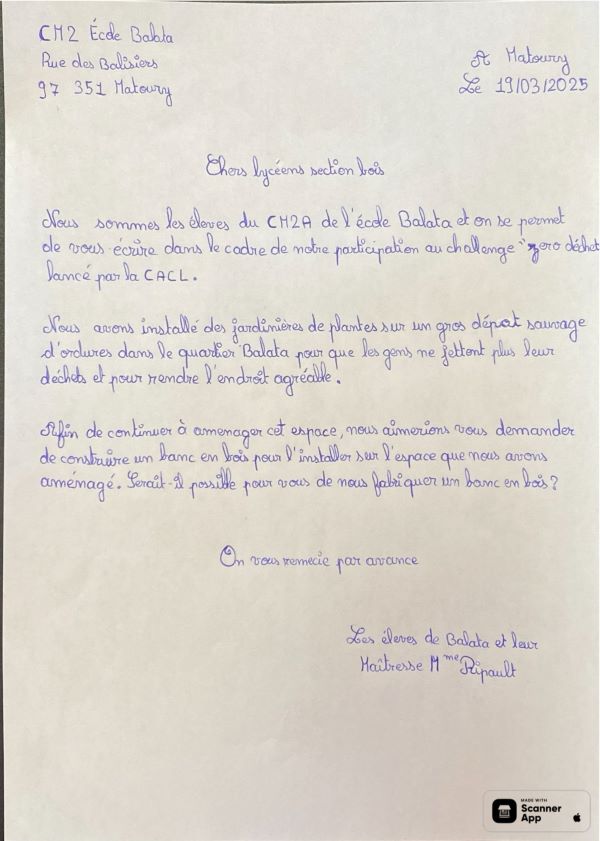 CM2 École Balata
Rue des Balisiers
97 351 Matoury
A Matoury
Le 19/03/2025
Chers lycéens section bois
Nous sommes les éleves du CM2A de l'école Balata et on se permet
de vous écrire dans le cadre de notre participation au challenge "zero déchet
lancé par la CACL.
Nous avons installé des jardinières de plantes sur un gros dépot sauvage
d'ordures dans le quartier Balata pour que les gens ne jettent plus leur
déchets et pour rendre l'endroit agréable.
Afin de continuer à amenager cet espace, nous aimerions vous demander
de construire un banc en bois pour l'installer sur l'espace que nous avons
aménagé. Serait-il possible pour vous de nous fabriquer un banc en bois?
On vous remecie par avance
Les éleves de Balata et leur
Maîtresse Mme Ripault
MADE WITH
Scanner
App